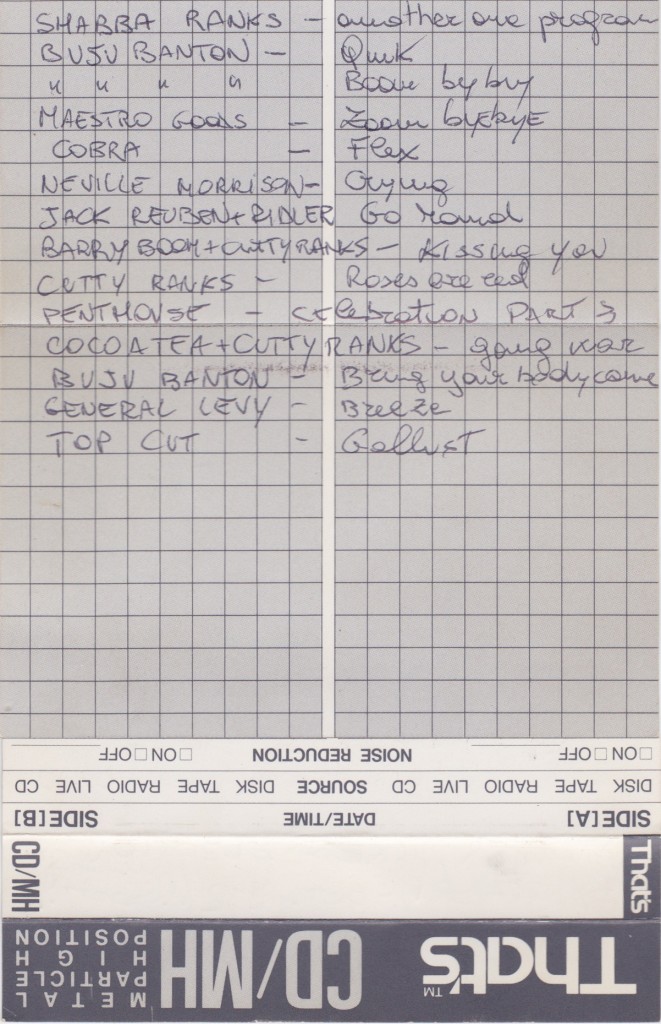 SHABBA RANKS - another one program
BUJU BANTON - Quik
" " " " Boom by by
MAESTRO GOODS - Zoom byEbyE
COBRA - Flex
NEVILLE MORRISON - Crying
JACK REUBEN + RIDLER Go round
BARRY BOOM + CUTTY RANKS - Kissing you
CUTTY RANKS - Roses are red
PENTHOUSE - CElebration PART 3
COCOATEA + CUTTY RANKS - going war
BUJU BANTON - Bring your body come
GENERAL LEVY - BreeZe
TOP CUT - Gallust
□ ON □ OFF NOISE REDUCTION □ ON □ OFF
DISK TAPE RADIO LIVE CD SOURCE DISK TAPE RADIO LIVE CD
SIDE[A] DATE/TIME SIDE[B]
That's CD/MH
That's™ CD/MH METAL
PARTICLE
HIGH
POSITION